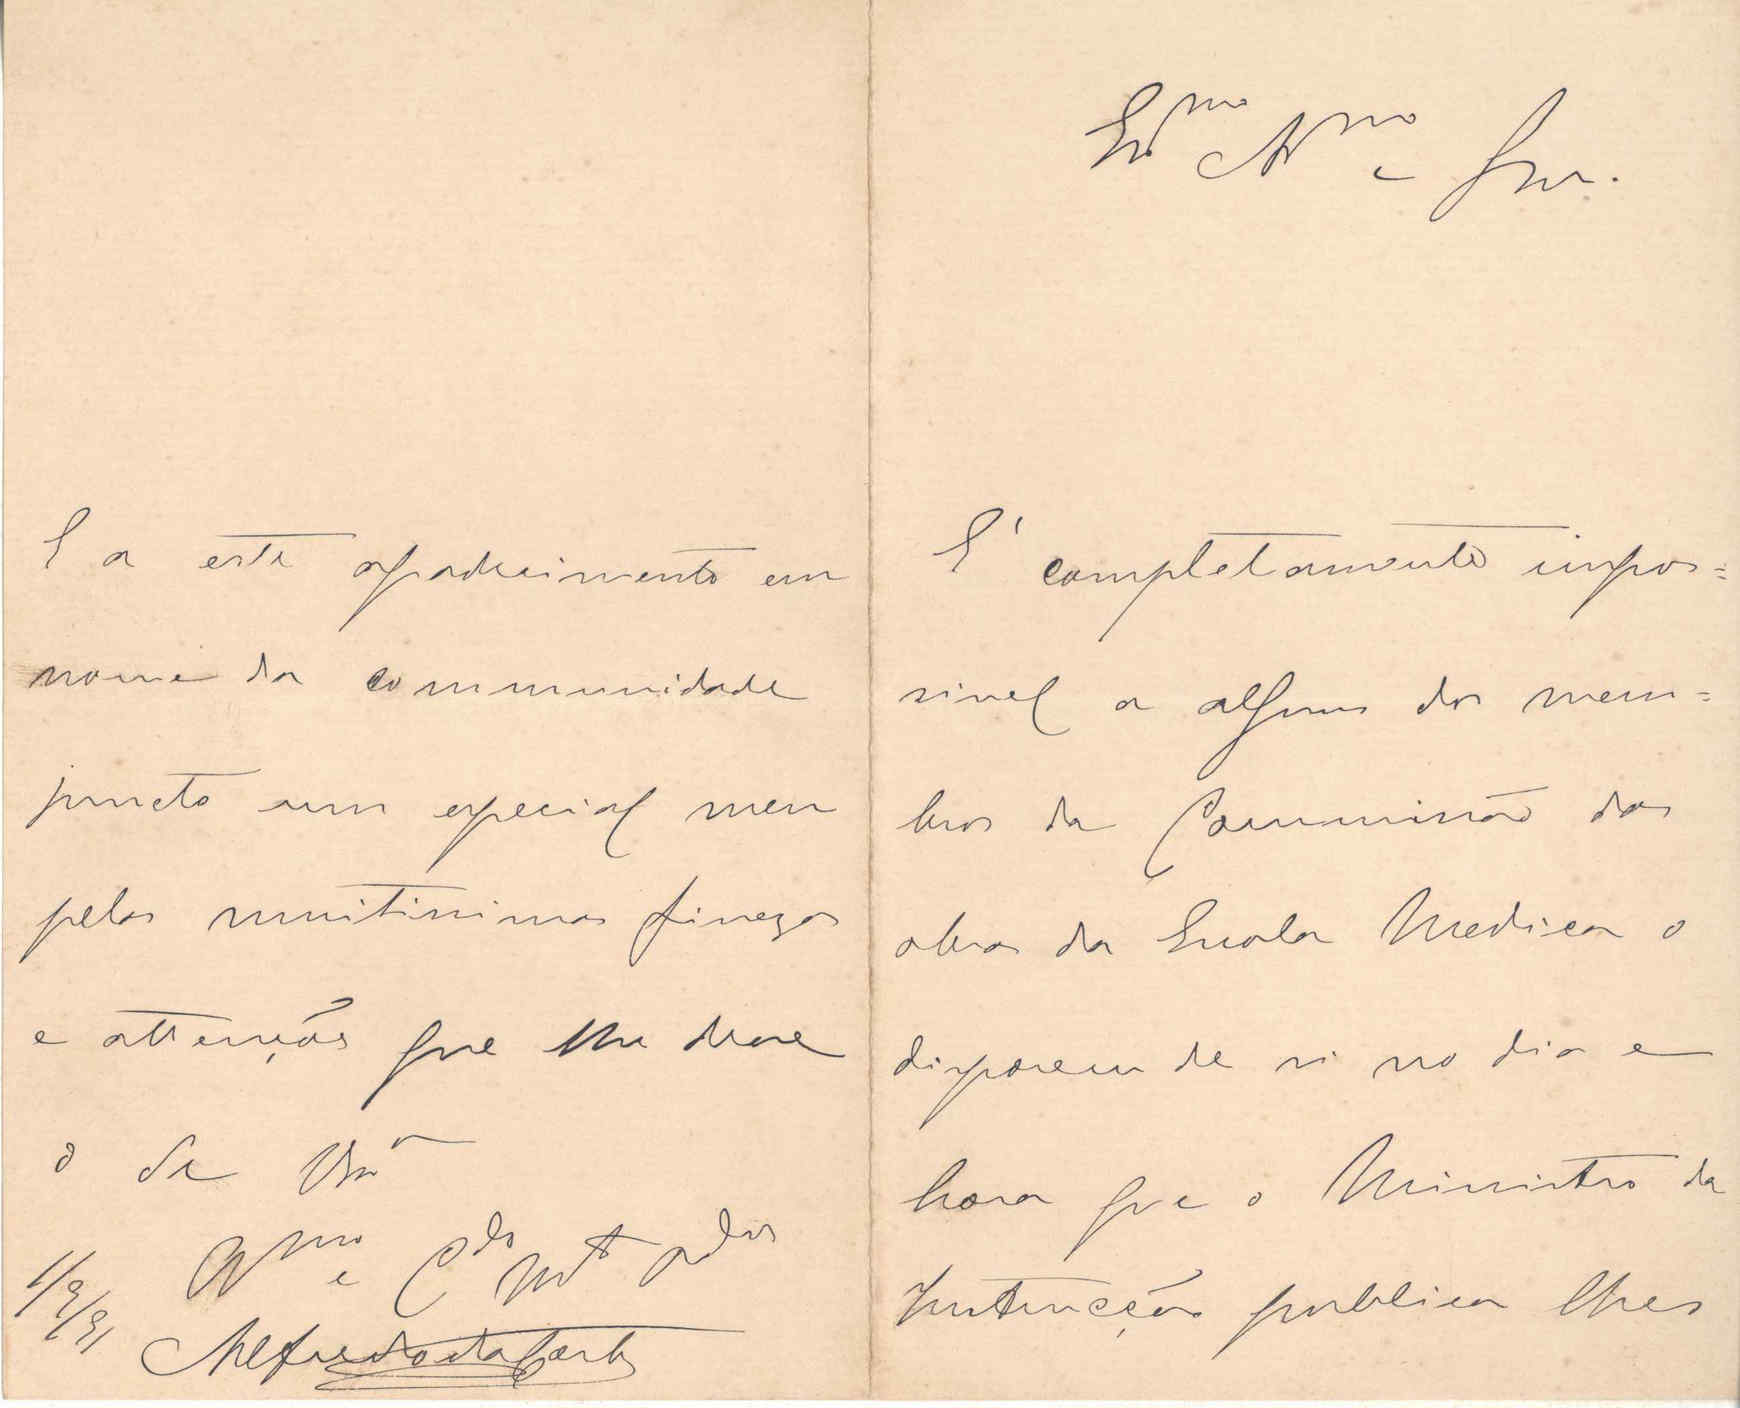 Ex.mo Am.o e Snr.
E' completamente impos=
sivel a alguns dos mem=
bros da Commissão das
obras da Escola Medica o
disporem de si no dia e
hora que o Ministro da
Instrucção publica lhes
E a este agradecimento em
nome da communidade
juncto um especial meu
pelas muitissimas finezas
e attenções que lhe deve
o de V.Exª
Am.mo e C.do Mt.º
Alfredo da Costa